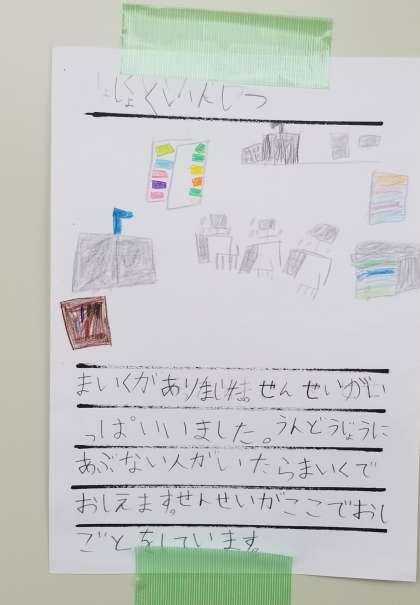 しょくいんしつ
まいくがありましたせんせいがい
っぱいいました。うんどうじょうに
あぶない人がいたらまいくで
おしえます。せんせいがここでおし
ごとをしています。